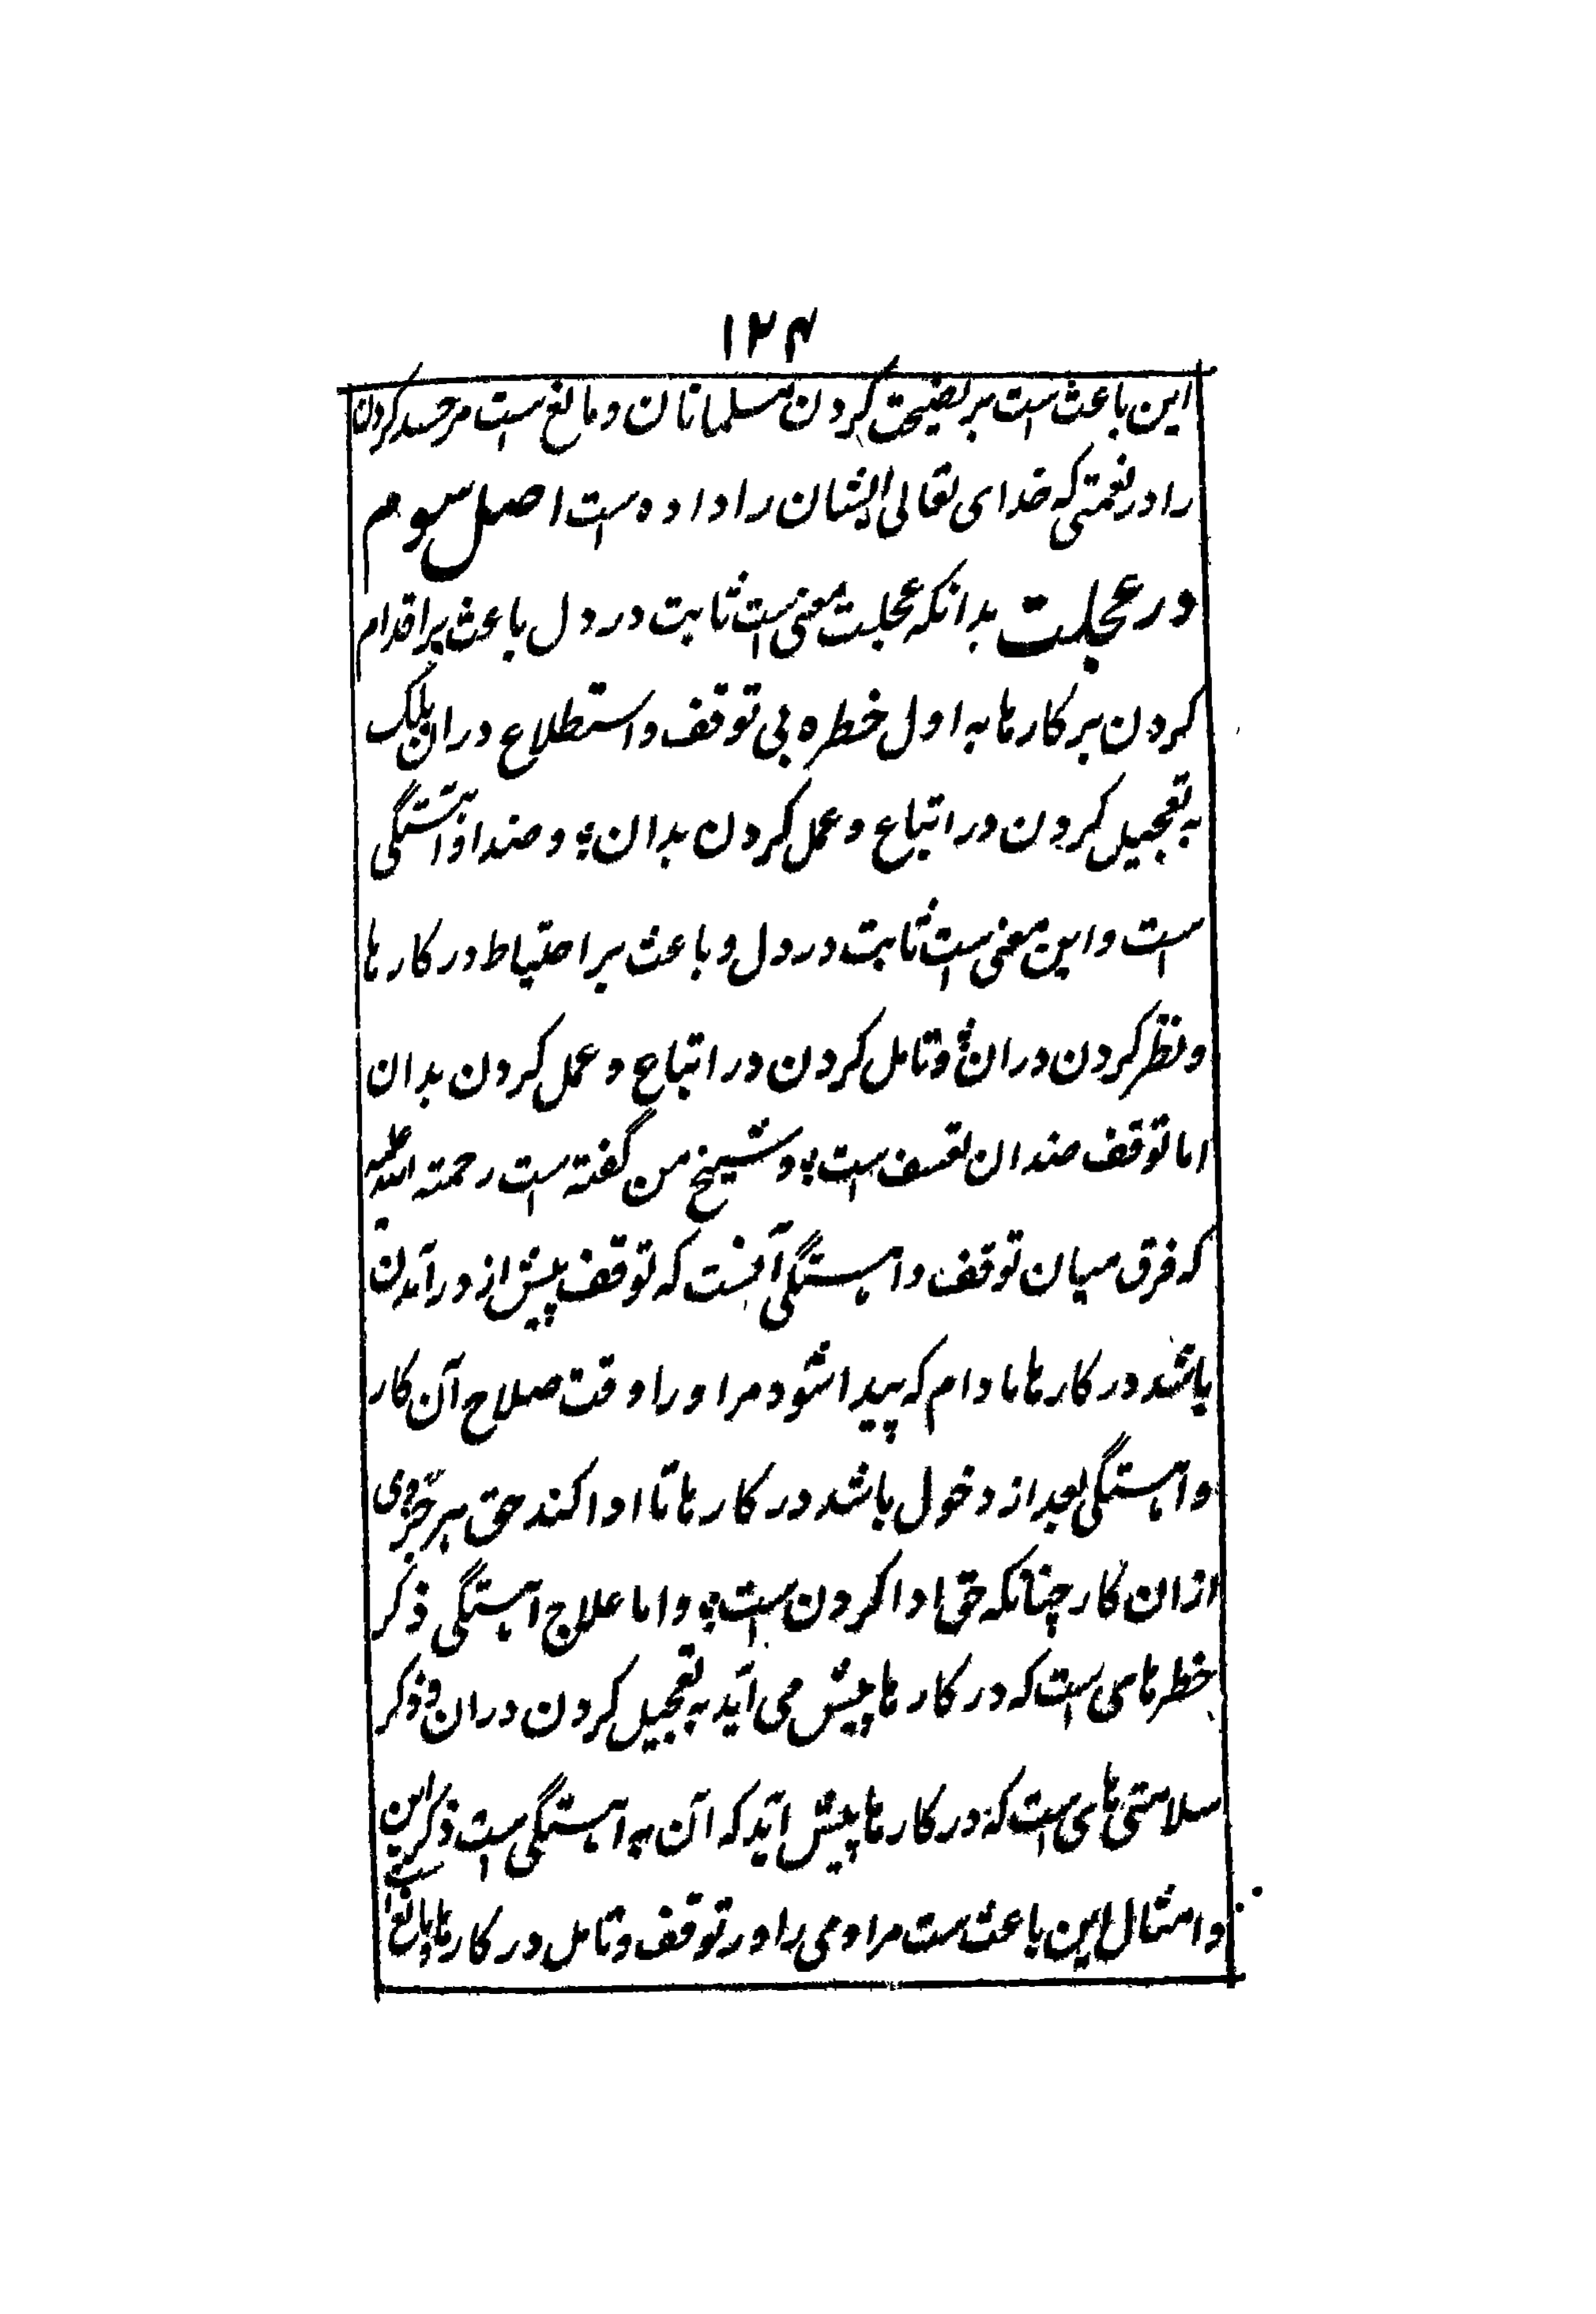 ۱۲۴
این باعث است بر نصیحت کردن مسلمانان و مانع است مر حسد کردن
را در نعمتی که خدای تعالی ایشان را داده است اصل سوم
در عجلت بدانکه عجلت معنی است ثابت در دل باعث بر اقدام
کردن بر کارها به اول خطره بی توقف و استطلاع دران بلک
به تعجیل کردن در اتباع و عمل کردن بدان ؛ و ضد او آهستگی
است و این معنی است ثابت در دل و باعث بر احتیاط در کارها
و نظر کردن دران ؛ و تامل کردن در اتباع و عمل کردن بدان
اما توقف ضد ان تعسف است ؛ و شیخ من گفته است رحمته الله علیه
که فرق میان توقف و آهستگی آنست که توقف پیش از در آمدن
باشد در کارها مادام که پیدا شود مر او را وقت صلاح آن کار
و آهستگی بعد از دخول باشد در کارها تا ادا کند حق هر جزوی
ازان کار چنانکه حق ادا کردن است ؛ و اما علاج آهستگی ذکر
خطرهای است که در کارها پیش می آید به تعجیل کردن دران و ذکر
سلامتی های است که در کارها پیش آید که آن به آهستگی است ذکر این
و امثال این باعث ست مر اومی را در توقف و تامل در کارها و مانع